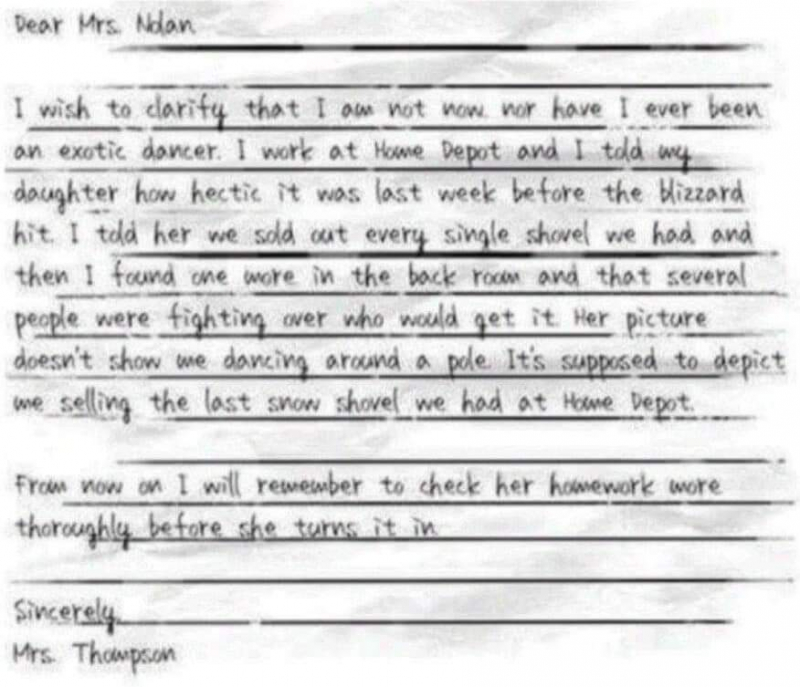 Dear Mrs. Nolan
I wish to clarify that I am not now. nor have I ever been
an exotic dancer. I work at Home Depot and I told my
daughter how hectic it was last week before the blizzard
hit. I told her we sold out every single shovel we had and
then I found one more in the back room and that several
people were fighting over who would get it. Her picture
doesn't show me dancing around a pole. It's supposed to depict
me selling the last snow shovel we had at Home Depot.
From now on I will remember to check her homework more
thoroughly before she turns it in
Sincerely.
Mrs. Thompson